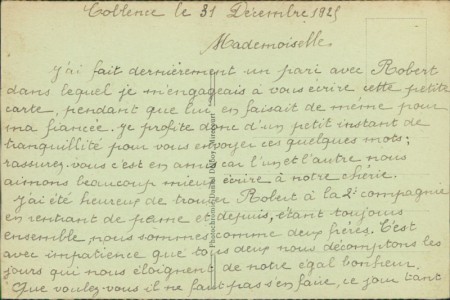 Coblence le 31 Décembre 1925
Mademoiselle
J'ai fait dernièrement un pari avec Robert
dans lequel je m'engageais à vous écrire cette petite
carte, pendant que lui en faisait de même pour
ma fiancée. Je profite donc d'un petit instant de
tranquillité pour vous envoyer ces quelques mots;
rassurez-vous c'est en ami car l'un et l'autre nous
aimons beaucoup mieux écrire à notre chérie.
J'ai été heureux de trouver Robert à la 2e compagnie
en rentrant de perme et depuis, étant toujours
ensemble nous sommes comme deux frères. C'est
avec impatience que tous deux nous décomptons les
jours qui nous éloignent de notre égal bonheur.
Que voulez-vous il ne faut pas s'en faire, ce jour tant